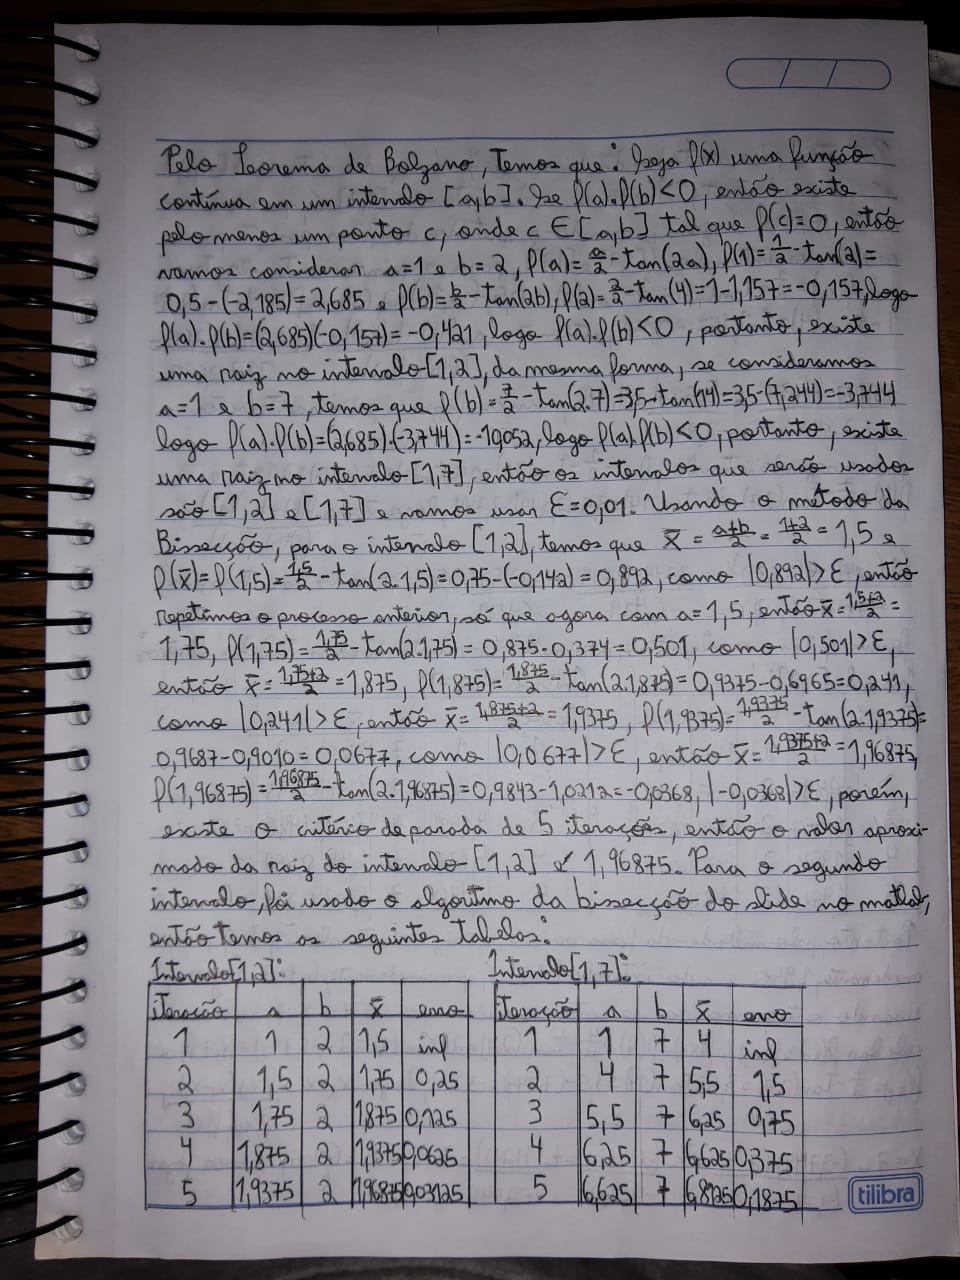 Pelo Teorema de Bolzano, temos que: Seja f(x) uma função
contínua em um intervalo [a,b]. Se f(a).f(b)<0, então existe
pelo menos um ponto c, onde c ∈ [a,b] tal que f(c)=0, então
vamos considerar a=1 e b=2, f(a)=a/2-tan(2a), f(1)=1/2-tan(2)=
0,5-(-2,185)=2,685 e f(b)=b/2-tan(2b), f(2)=2/2-tan(4)=1-1,157=-0,157, logo
f(a).f(b)=(2,685)(-0,157)=-0,421, logo f(a).f(b)<0, portanto, existe
uma raiz no intervalo [1,2], da mesma forma, se consideramos
a=1 e b=7, temos que f(b)=7/2-tan(2.7)=3,5-tan(14)=3,5-(7,244)=-3,744
logo f(a).f(b)=(2,685).(-3,744)=-10052, logo f(a).f(b)<0, portanto, existe
uma raiz no intervalo [1,7], então os intervalos que serão usados
são [1,2] e [1,7] e vamos usar Ɛ=0,01. Usando o método da
Bissecção, para o intervalo [1,2], temos que x̄=a+b/2=1+2/2=1,5 e
f(x̄)=f(1,5)=1,5/2-tan(2.1,5)=0,75-(-0,142)=0,892, como |0,892|>Ɛ, então
repetimos o processo anterior, só que agora com a=1,5, então x̄=1,5+2/2=
1,75, f(1,75)=1,75/2-tan(2.1,75)=0,875-0,374=0,501, como |0,501|>Ɛ,
então x̄=1,75+2/2=1,875, f(1,875)=1,875/2-tan(2.1,875)=0,9375-0,6965=0,241,
como |0,241|>Ɛ, então x̄=1,875+2/2=1,9375, f(1,9375)=1,9375/2-tan(2.1,9375)=
0,9687-0,9010=0,0677, como |0,0677|>Ɛ, então x̄=1,9375+2/2=1,96875,
f(1,96875)=1,96875/2-tan(2.1,96875)=0,9843-1,0212=-0,0368, |-0,0368|>Ɛ, porém,
existe o critério de parada de 5 iterações, então o valor aproxi-
mado da raiz do intervalo [1,2] é 1,96875. Para o segundo
intervalo, foi usado o algoritmo da bissecção do slide no matlab,
então temos as seguintes tabelas:
Intervalo[1,2]: Intervalo[1,7]:
iteração a b x̄ erro iteração a b x̄ erro
1 1 2 1,5 inf 1 1 7 4 inf
2 1,5 2 1,75 0,25 2 4 7 5,5 1,5
3 1,75 2 1,875 0,125 3 5,5 7 6,25 0,75
4 1,875 2 1,9375 0,0625 4 6,25 7 6,625 0,375
5 1,9375 2 1,96875 0,03125 5 6,625 7 6,8125 0,1875
tilibra